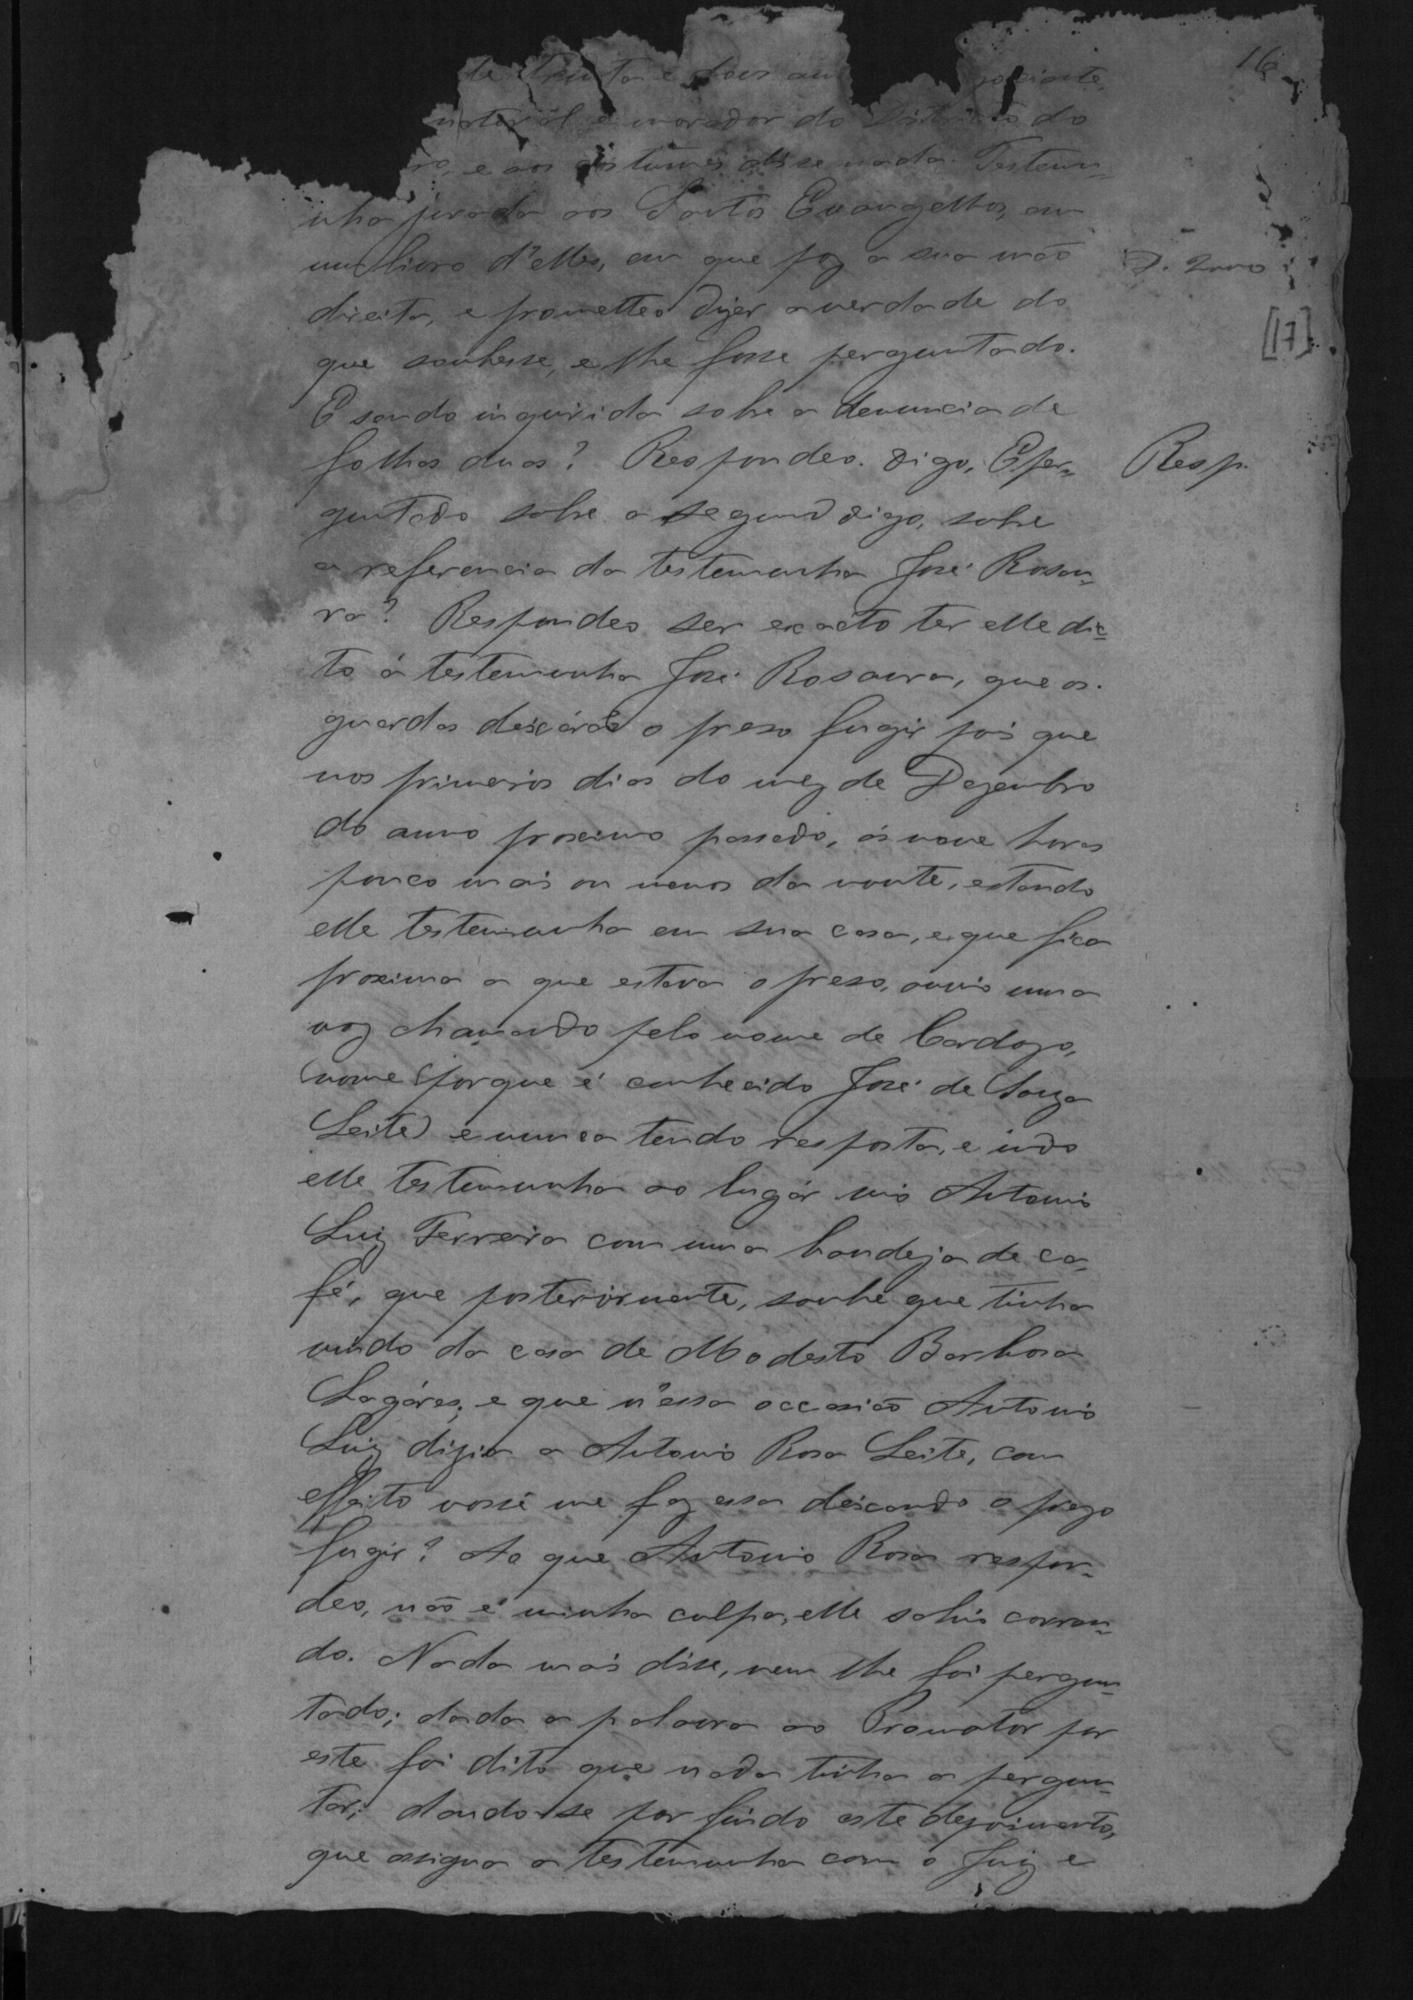 16
de trinta e dois an
natural e morador do districto do
e aos costumes disse nada. Testemu-
nha jurada aos Santos Evangelhos, em
um livro d'elles, em que poz a sua mão
direita, e prometteo dizer a verdade do
que soubesse, e lhe fosse perguntado.
[17]
E sendo inquirida sobre a denuncia de
folhas duas? Respondeo. Digo, E per-
Resp.
guntado sobre a segund digo, sobre
a referencia da testemunha José Rosau-
ra? Respondeo ser exacto ter elle dic-
to á testemunha José Rosaura, que os
guardas deixárão o preso fugir pois que
nos primeiros dias do mez de Dezembro
do anno proximo passado, ás nove horas
pouco mais ou menos da noute, estando
elle testemunha em sua casa, e que fica
proxima a que estava o preso, ouvio uma
voz chamando pelo nome de Cardozo,
(nome porque é conhecido José de Souza
Leite) e nunca tendo resposta, e indo
elle testemunha ao lugár vio Antonio
Luiz Ferreira com uma bandeja de ca-
fé, que posteriormente, soube que tinha
vindo da casa de Modesto Barbosa
Lagáres; e que n'essa occasião Antonio
Luiz dizia a Antonio Rosa Leite, com
effeito vossê me faz essa deixando o prezo
fugir? Ao que Antonio Rosa respon-
deo, não é minha culpa, elle sahio corren-
do. Nada mais disse, nem lhe foi pergun-
tado; dada a palavra ao Promotor por
este foi dito que nada tinha a pergun-
tar; dando-se por findo este depoimento,
que assigna a testemunha com o Juiz e